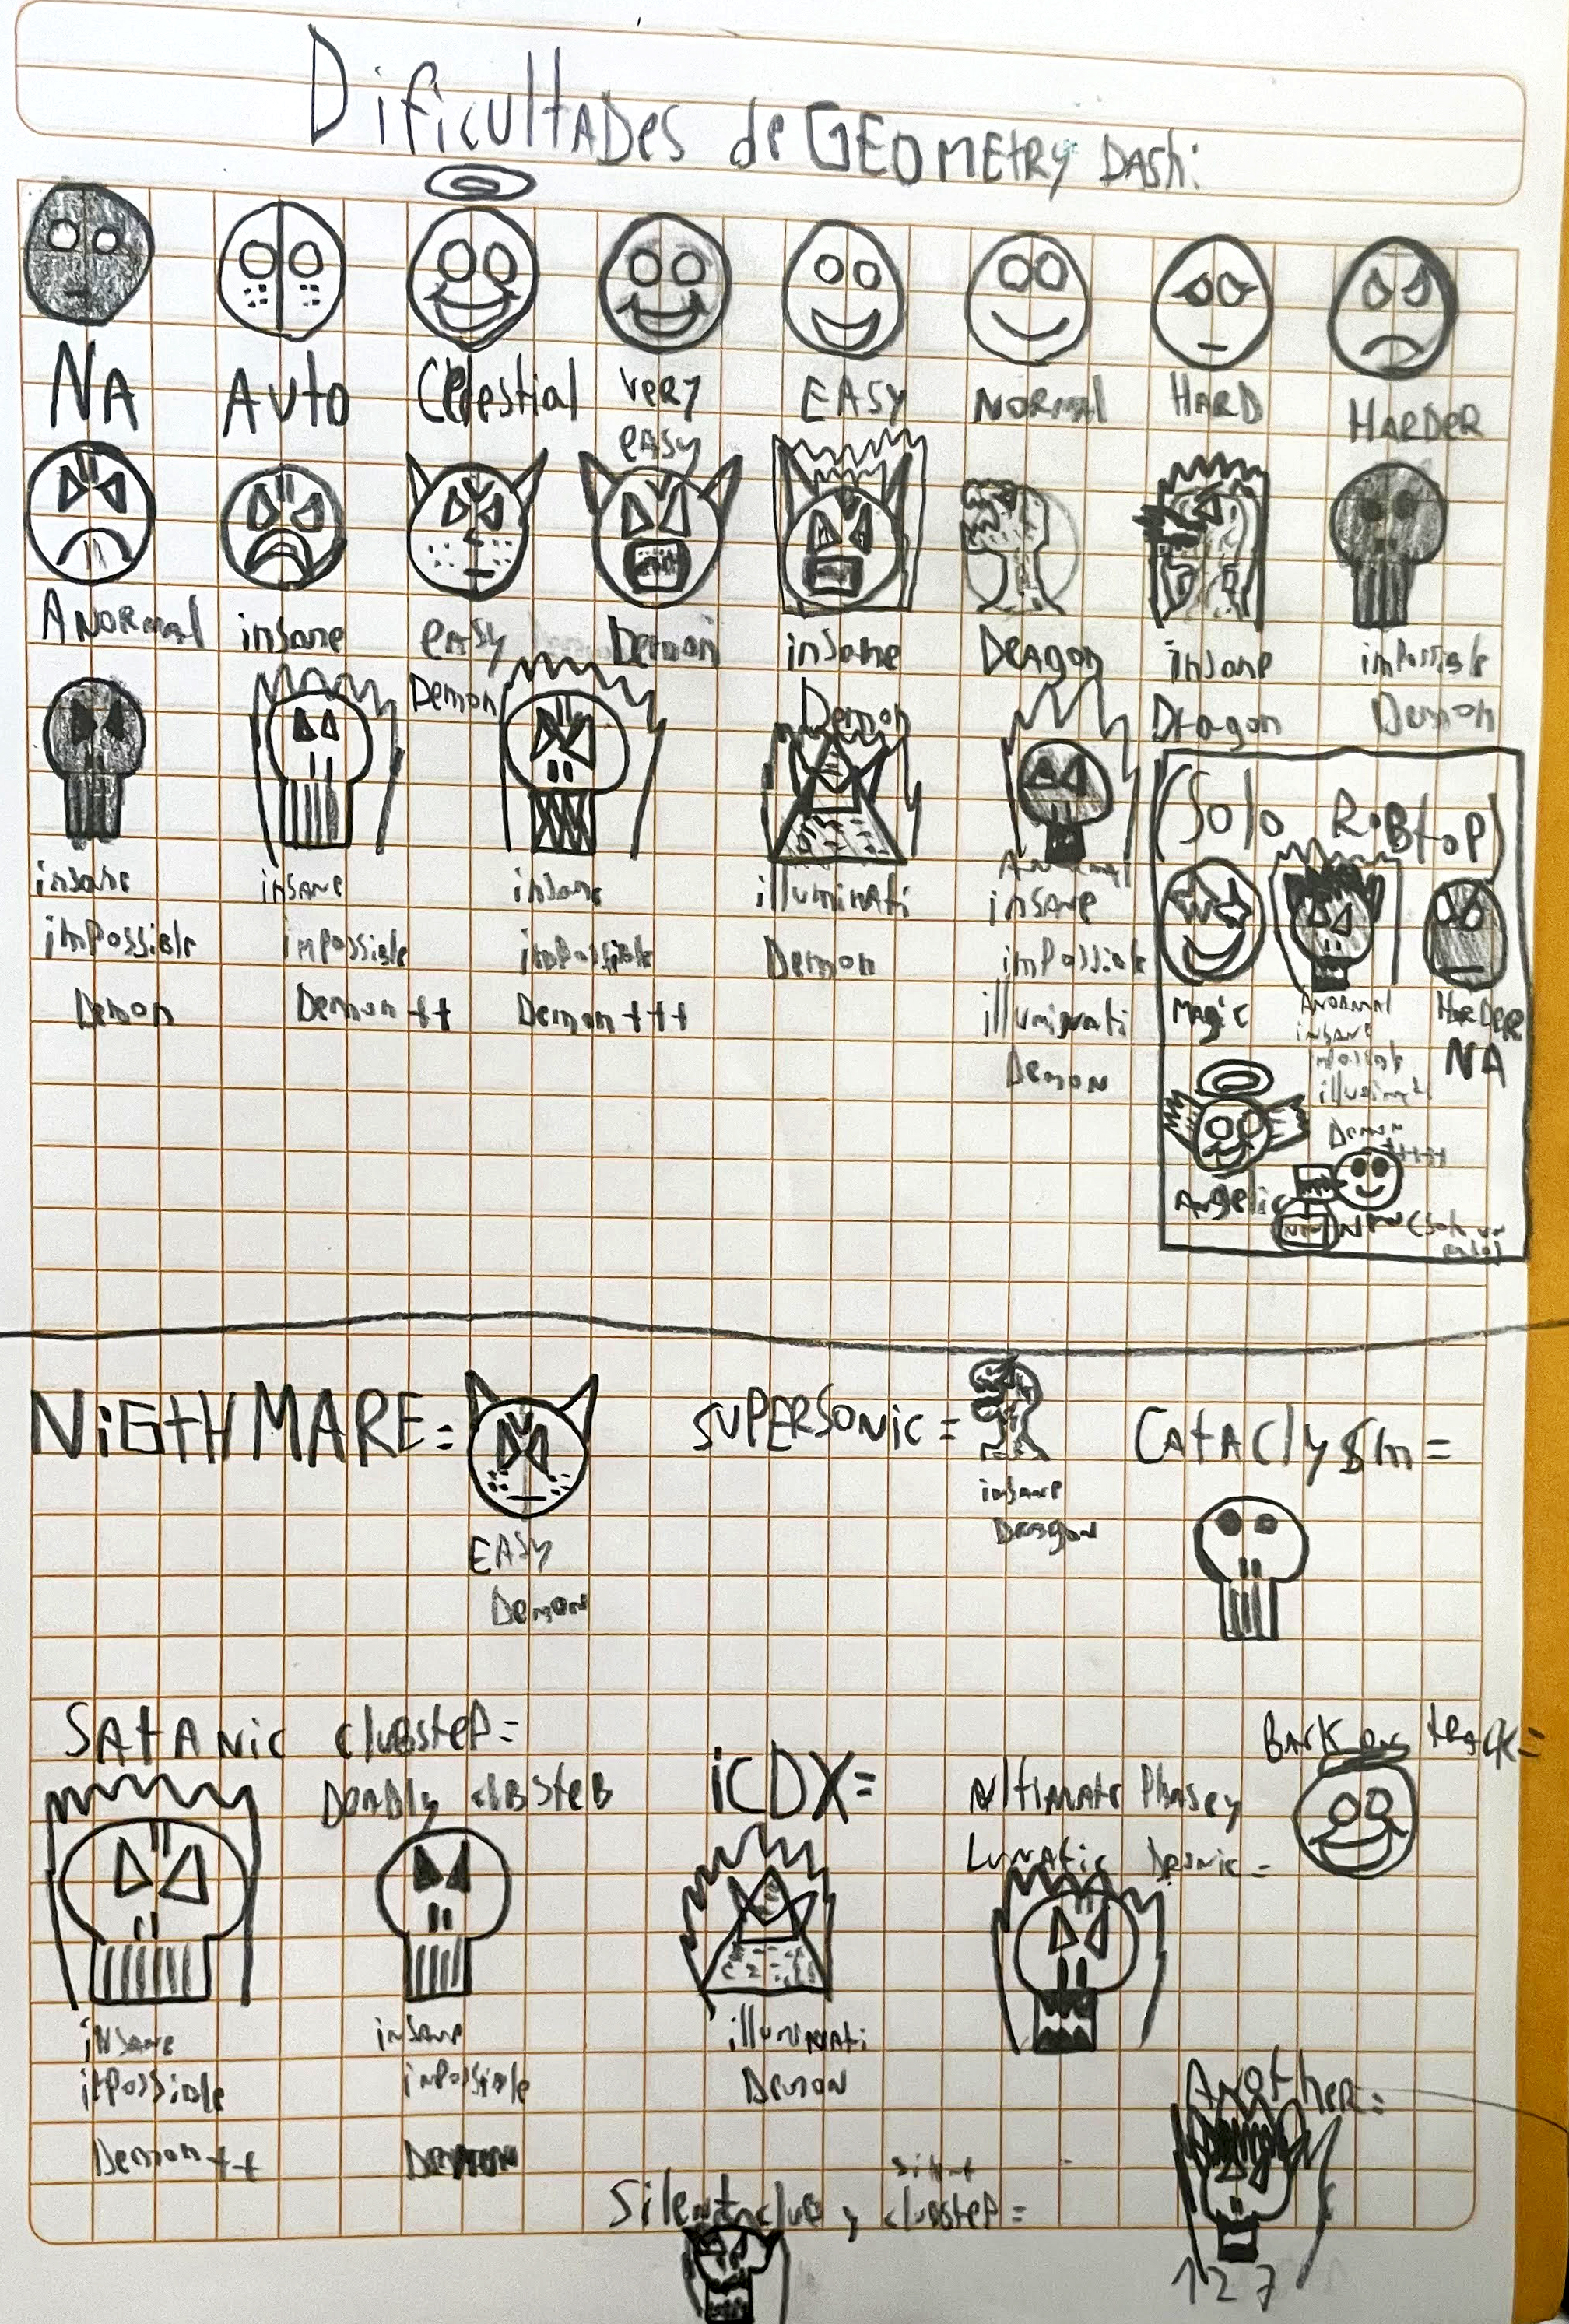 Dificultades de GEOMETRY DASH:
NA
Auto
Celestial
VERY
EASY
EASY
NORMAL
HARD
HARDER
ANORMAL
insane
EASY
Demon
Demon
insane
Demon
Dragon
insane
Dragon
imposible
Demon
insane
impossible
Demon
insane
impossible
Demon ++
insane
impossible
Demon +++
illuminati
Demon
Anormal
insane
impossible
illuminati
Demon
(Solo RobTop)
Magic
Anormal
insane
Demon
++++
HARDER
NA
Angelic
NiGtHMARE =
EASY
Demon
SUPERSONIC =
insane
Dragon
CATAClySm =
SATANic clubstep =
insane
impossible
Demon ++
insane
impossible
Demon
iCDX =
illuminati
Demon
Lunatic
BACK on tRACK =
Silent club y
clubstep =
Another =
127